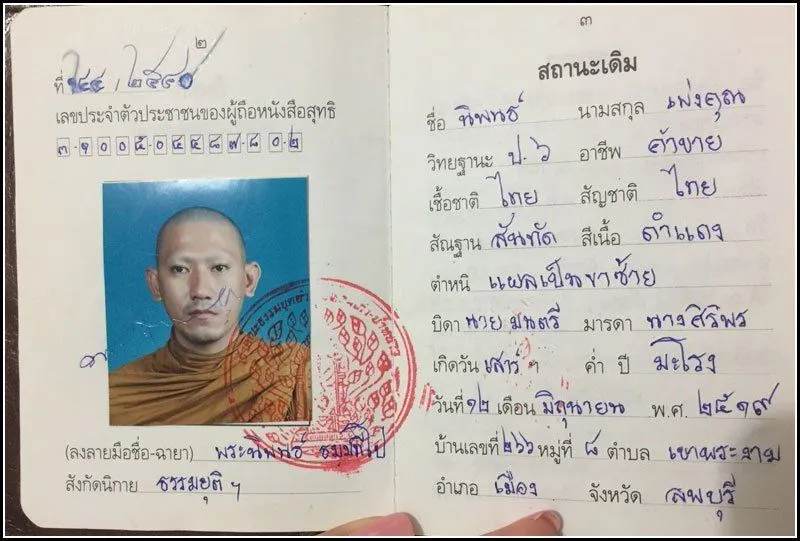 ๒
ที่ ๑๔๔ / ๒๕๔๐
เลขประจำตัวประชาชนของผู้ถือหนังสือสุทธิ
๓-๑๐๐๕-๐๔๔๘๗-๘๐-๒
(ลงลายมือชื่อ-ฉายา) พระนิพนธ์
สังกัดนิกาย ธรรมยุติ ฯ
๓
สถานะเดิม
ชื่อ นิพนธ์ นามสกุล เพ่งคุณ
วิทยฐานะ ป.๖ อาชีพ ค้าขาย
เชื้อชาติ ไทย สัญชาติ ไทย
สัณฐาน สันทัด สีเนื้อ ดำแดง
ตำหนิ แผลเป็นขาซ้าย
บิดา นาย มนตรี มารดา นางศิริพร
เกิดวัน เสาร์ ฯ ค่ำ ปี มะโรง
วันที่ ๑๒ เดือน มิถุนายน พ.ศ. ๒๕๑๙
บ้านเลขที่ ๒๖๖ หมู่ที่ ๘ ตำบล เขาพระงาม
อำเภอ เมือง จังหวัด ลพบุรี